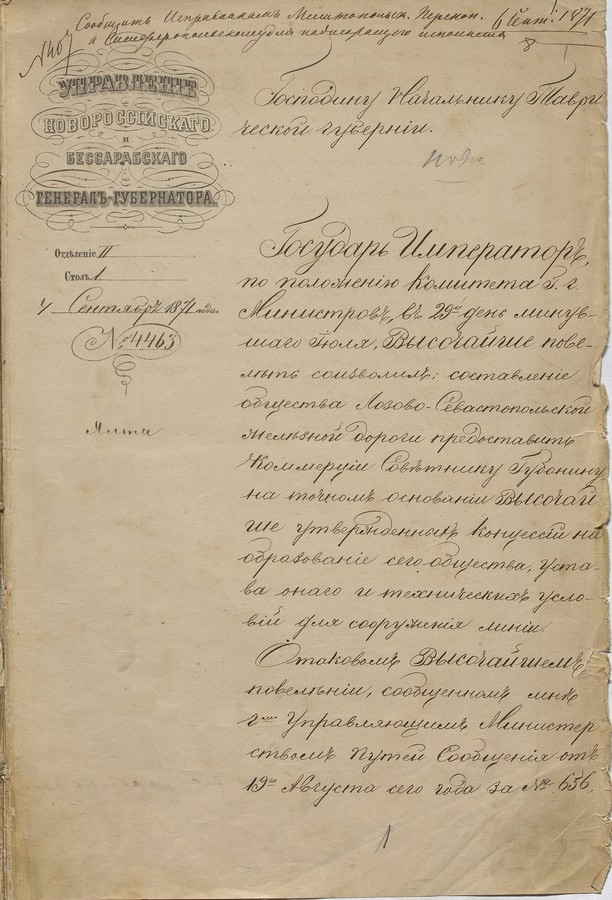 Сообщить Исправникам Мелитопольск. Перекоп. 6 Сент: 1871
и Симферопольскому для надлежащего исполнения
8
УПРАВЛЕНІЕ
НОВОРОССІЙСКАГО
И
БЕССАРАБСКАГО
ГЕНЕРАЛЪ-ГУБЕРНАТОРА.
Отдѣленіе II
Столъ 1
4 Сентябрь 1871 года.
№ 4463
Ялта
Господину Начальнику Таври
ческой губерніи.
Государь Императоръ,
по положенію Комитета Г. г.
Министровъ, въ 29й день минув-
шаго Іюля, Высочайше пове-
лѣть соизволилъ: составленіе
общества Лозово-Севастопольской
желѣзной дороги предоставить
Коммерціи Совѣтнику Губонину
на точномъ основаніи Высочай
ше утвержденныхъ концессіи на
образованіе сего общества, уста-
ва онаго и техническихъ усло-
вій для сооруженія линіи.
О таковомъ Высочайшемъ
повелѣніи, сообщенномъ мнѣ
Управляющимъ Министер
ствомъ Путей Сообщенія отъ
19го Августа сего года за № 656,
1